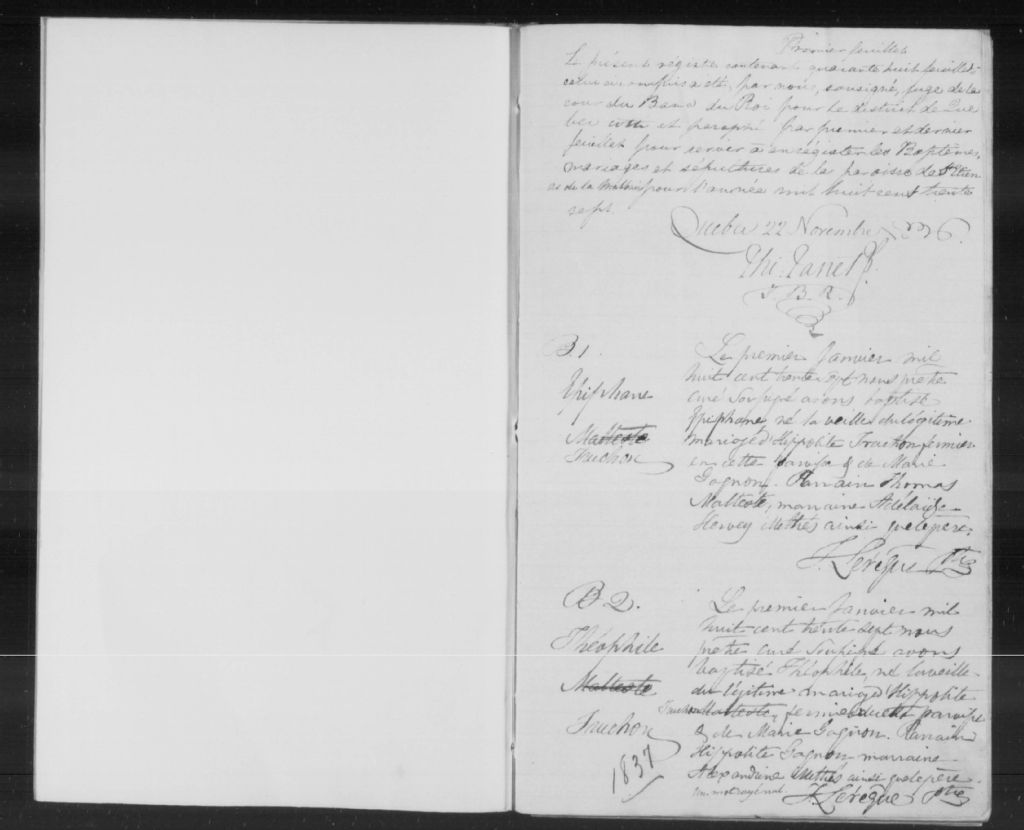 Premier feuillet
Le présent régistre contenant quarante huit feuillets
celui ci compris a été, par nous, soussigné, juge de la
cour du Banc du Roi pour le district de Qué
bec coté et paraphé par premier et dernier
feuillet pour servir à enrégistrer les Baptêmes,
mariages et sépultures de la paroisse de St Etien
ne de la Malbaie pour l'année mil huit cent trente
sept.
Quebec 22 Novembre 1836.
J. B. R.
B. 1.
Epiphane
Malteste
Truchon
Le premier Janvier mil
huit cent trente sept nous prêtre
curé Soussigné avons baptisé
Epiphane, né la veille du légitime
mariage d'Hippolite Truchon fermier
en cette paroisse & de Marie
Gagnon. Parrain Thomas
Malteste, marraine Adélaïde
Hervey illetrés ainsi que le père.
J. Lévêque Ptre
B 2.
Théophile
Malteste
Truchon
1837
Le premier Janvier mil
huit cent trente sept nous
prêtre curé Soussigné avons
baptisé Théophile, né la veille
du légitime mariage d'Hippolite
Truchon Malteste, fermier de cette paroisse
& de Marie Gagnon. Parrain
Hippolite Gagnon marraine
Alexandrine illetrés ainsi que le père.
Un mot rayé nul.
J. Lévêque Ptre